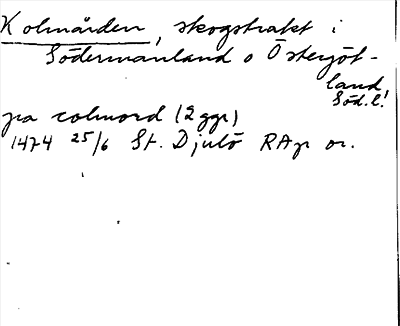 Kolmården, skogstrakt i
Södermanland o Östergöt-
land,
Söd.l!
pa colmord (2 ggr)
1474 25/6 St. Djulö RAp or.